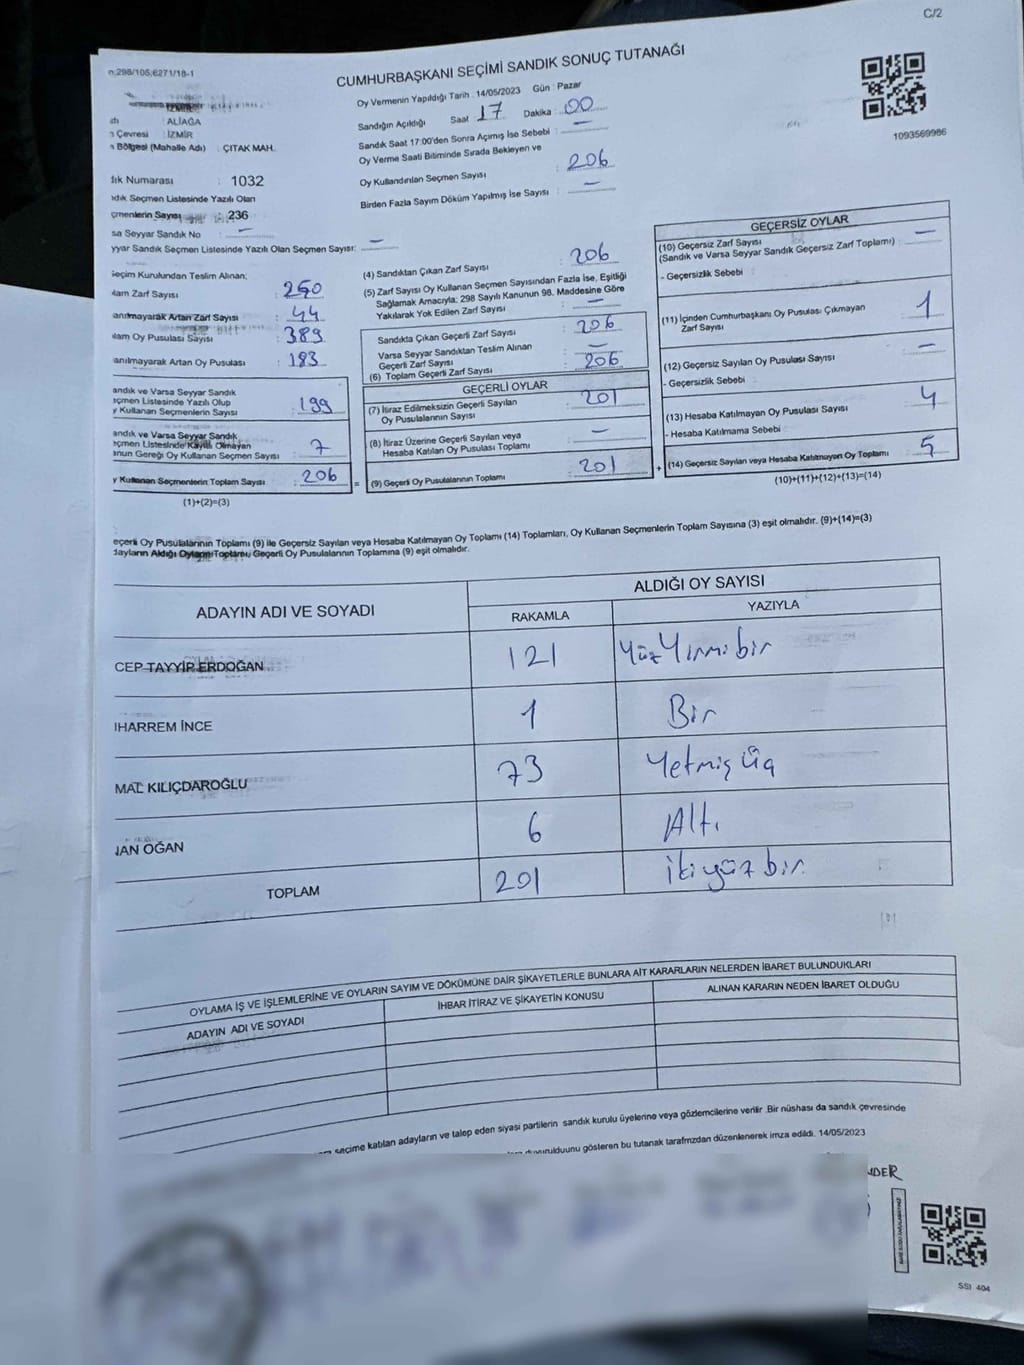 C/2
n:298/105;6271/18-1
CUMHURBAŞKANI SEÇİMİ SANDIK SONUÇ TUTANAĞI
Oy Vermenin Yapıldığı Tarih : 14/05/2023 Gün : Pazar
Sandığın Açıldığı Saat : 17 Dakika : 00
Sandık Saat 17:00'den Sonra Açımış İse Sebebi : —
Oy Verme Saati Bitiminde Sırada Bekleyen ve
Oy Kullandırılan Seçmen Sayısı : 206
Birden Fazla Sayım Döküm Yapılmış İse Sayısı : —
1093569986
İZMİR
: ALİAĞA
n Çevresi : İZMİR
n Bölgesi (Mahalle Adı) : ÇITAK MAH.
dık Numarası : 1032
ndık Seçmen Listesinde Yazılı Olan
çmenlerin Sayısı : 236
sa Seyyar Sandık No : —
yyar Sandık Seçmen Listesinde Yazılı Olan Seçmen Sayısı: —
Seçim Kurulundan Teslim Alınan;
lam Zarf Sayısı : 250
anılmayarak Artan Zarf Sayısı : 44
lam Oy Pusulası Sayısı : 389
anılmayarak Artan Oy Pusulası : 183
andık ve Varsa Seyyar Sandık
eçmen Listesinde Yazılı Olup
y Kullanan Seçmenlerin Sayısı : 199
andık ve Varsa Seyyar Sandık
eçmen Listesinde Kayıtlı Olmayan
anun Gereği Oy Kullanan Seçmen Sayısı : 7
y Kullanan Seçmenlerin Toplam Sayısı : 206 =
(1)+(2)=(3)
(4) Sandıktan Çıkan Zarf Sayısı : 206
(5) Zarf Sayısı Oy Kullanan Seçmen Sayısından Fazla İse, Eşitliği
Sağlamak Amacıyla; 298 Sayılı Kanunun 98. Maddesine Göre
Yakılarak Yok Edilen Zarf Sayısı : —
Sandıkta Çıkan Geçerli Zarf Sayısı : 206
Varsa Seyyar Sandıktan Teslim Alınan
Geçerli Zarf Sayısı : —
(6) Toplam Geçerli Zarf Sayısı : 206
GEÇERLİ OYLAR
(7) İtiraz Edilmeksizin Geçerli Sayılan
Oy Pusulalarının Sayısı : 201
(8) İtiraz Üzerine Geçerli Sayılan veya
Hesaba Katılan Oy Pusulası Toplamı : —
(9) Geçerli Oy Pusulalarının Toplamı : 201 +
GEÇERSİZ OYLAR
(10) Geçersiz Zarf Sayısı
(Sandık ve Varsa Seyyar Sandık Geçersiz Zarf Toplamı) : —
- Geçersizlik Sebebi :
(11) İçinden Cumhurbaşkanı Oy Pusulası Çıkmayan
Zarf Sayısı : 1
(12) Geçersiz Sayılan Oy Pusulası Sayısı : —
- Geçersizlik Sebebi :
(13) Hesaba Katılmayan Oy Pusulası Sayısı : 4
- Hesaba Katılmama Sebebi :
(14) Geçersiz Sayılan veya Hesaba Katılmayan Oy Toplamı : 5
(10)+(11)+(12)+(13)=(14)
eçerli Oy Pusulalarının Toplamı (9) ile Geçersiz Sayılan veya Hesaba Katılmayan Oy Toplamı (14) Toplamları, Oy Kullanan Seçmenlerin Toplam Sayısına (3) eşit olmalıdır. (9)+(14)=(3)
dayların Aldığı Oyların Toplamı, Geçerli Oy Pusulalarının Toplamına (9) eşit olmalıdır.
ADAYIN ADI VE SOYADI
ALDIĞI OY SAYISI
RAKAMLA YAZIYLA
CEP TAYYİP ERDOĞAN 121 Yüz Yirmi bir
IHARREM İNCE 1 Bir
MAL KILIÇDAROĞLU 73 Yetmiş üç
NAN OĞAN 6 Altı
TOPLAM 201 İki yüz bir
OYLAMA İŞ VE İŞLEMLERİNE VE OYLARIN SAYIM VE DÖKÜMÜNE DAİR ŞİKAYETLERLE BUNLARA AİT KARARLARIN NELERDEN İBARET BULUNDUKLARI
ADAYIN ADI VE SOYADI İHBAR İTİRAZ VE ŞİKAYETİN KONUSU ALINAN KARARIN NEDEN İBARET OLDUĞU
seçime katılan adayların ve talep eden siyasi partilerin sandık kurulu üyelerine veya gözlemcilerine verilir. Bir nüshası da sandık çevresinde
duyurulduunu gösteren bu tutanak tarafımzdan düzenlenerek imza edildi. 14/05/2023
NDER
SSI 404